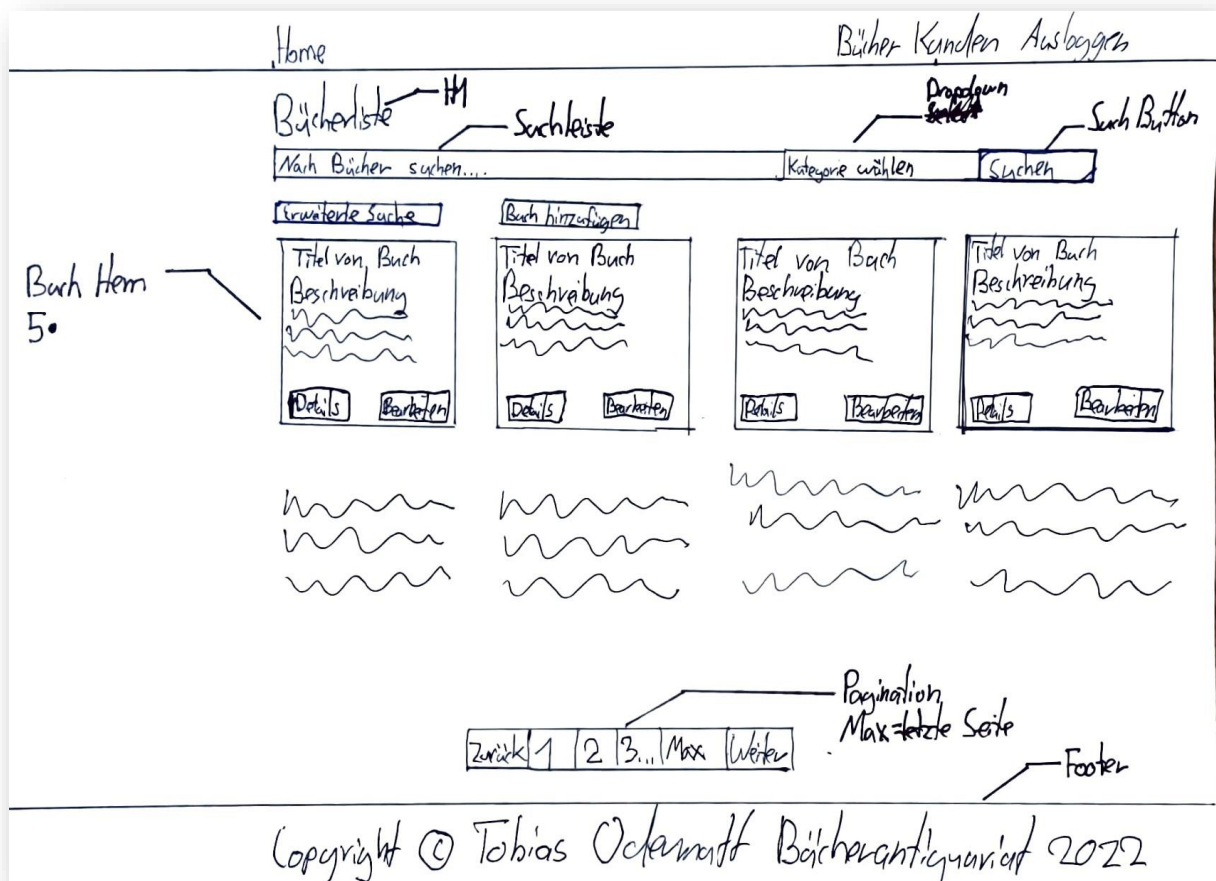 Home
Bücher Kunden Ausloggen
Bücherliste
H1
Suchleiste
Dropdown
Such Button
Nach Bücher suchen....
Kategorie wählen
Suchen
Erweiterte Suche
Buch hinzufügen
Buch Item
5.
Titel von Buch
Beschreibung
Details
Bearbeiten
Titel von Buch
Beschreibung
Details
Bearbeiten
Titel von Buch
Beschreibung
Details
Bearbeiten
Titel von Buch
Beschreibung
Details
Bearbeiten
Pagination
Max=letzte Seite
Zurück 1 2 3... Max Weiter
Footer
Copyright © Tobias Odermatt Bücherantiquariat 2022